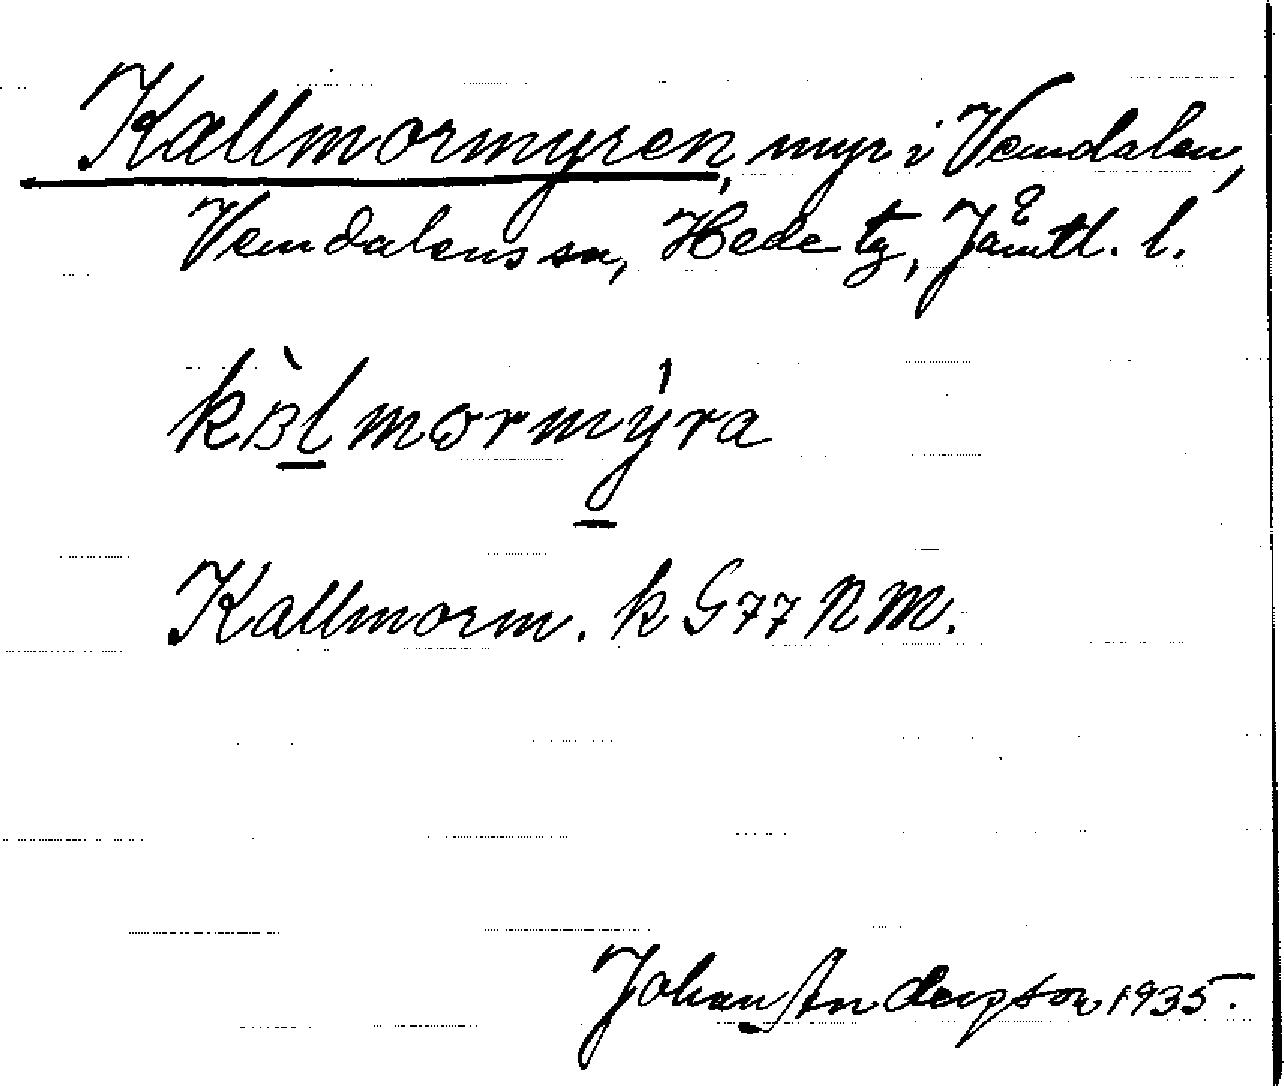 Kallmormyren, myr i Vemdalen,
Vemdalens sn, Hede tg, Jämtl. l.
kàlmormýra
Kallmorm. k G77 NM.
Johan Anderson 1935.